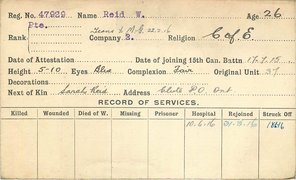 Reg. No. 47929 Name Reid W. Age 26
Pte.
Rank Company B. Religion C of E.
Date of Attestation Date of joining 15th Can. Battn 17.7.15
Height 5-10 Eyes Blue Complexion Fair Original Unit 37
Decorations
Next of Kin Sarah Reid Address Clute P.O. Ont
RECORD OF SERVICES.
Killed Wounded Died of W. Missing Prisoner Hospital Rejoined Struck Off
10.6.16